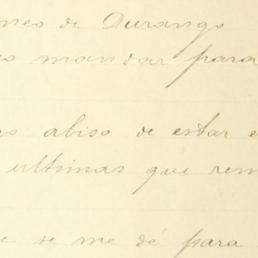 nes de Durango
es mandar para
abiso de estar e
ultimas que rem
e se me dé para